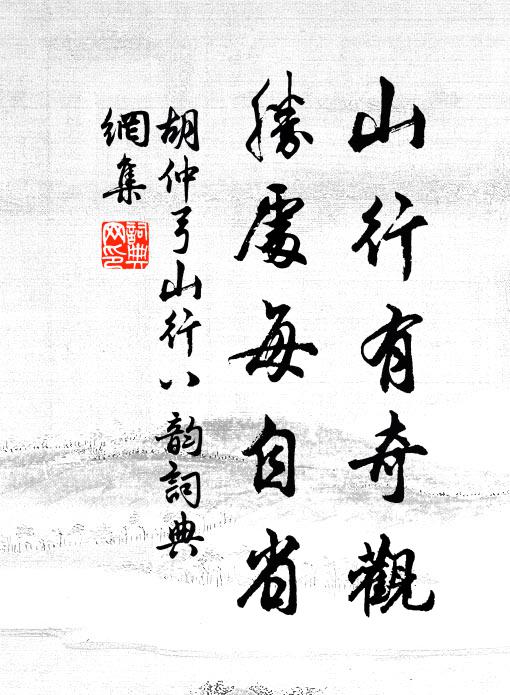 山行有奇觀
勝處每自省
胡仲弓山行八韵詞典
網集
詞典网印